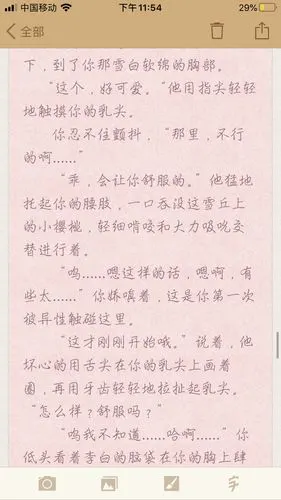 中国移动 下午11:54 29%
全部
下，到了你那雪白软绵的胸部。
“这个，好可爱。”他用指尖轻轻
地触摸你的乳尖。
你忍不住颤抖，“那里，不行
的啊……”
“乖，会让你舒服的。”他猛地
托起你的腰肢，一口吞没这雪丘上
的小樱桃，轻细啃咬和大力吸吮交
替进行着。
“呜……嗯这样的话，嗯啊，有
些太……”你娇嗔着，这是你第一次
被异性触碰这里。
“这才刚刚开始哦。”说着，他
坏心的用舌尖在你的乳尖上画着
圈，再用牙齿轻轻地拉扯起乳尖。
“怎么样？舒服吗？”
“呜我不知道……哈啊……”你
低头看着李白的脑袋在你的胸上肆